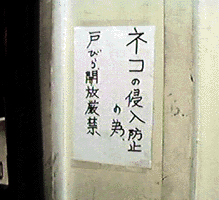 ネコの侵入防止
の為、
戸びら、開放厳禁